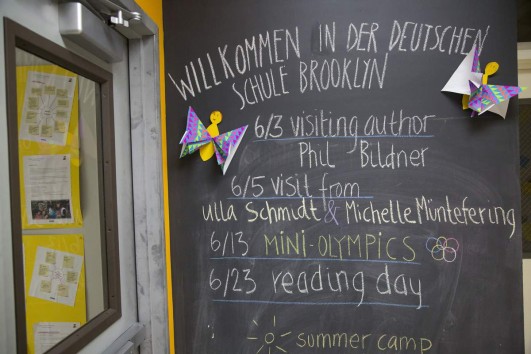 WILLKOMMEN IN DER DEUTSCHEN
SCHULE BROOKLYN
6/3 visiting author
Phil Bildner
6/5 visit from
Ulla Schmidt & Michelle Müntefering
6/13 MINI-OLYMPICS
6/23 reading day
summer camp